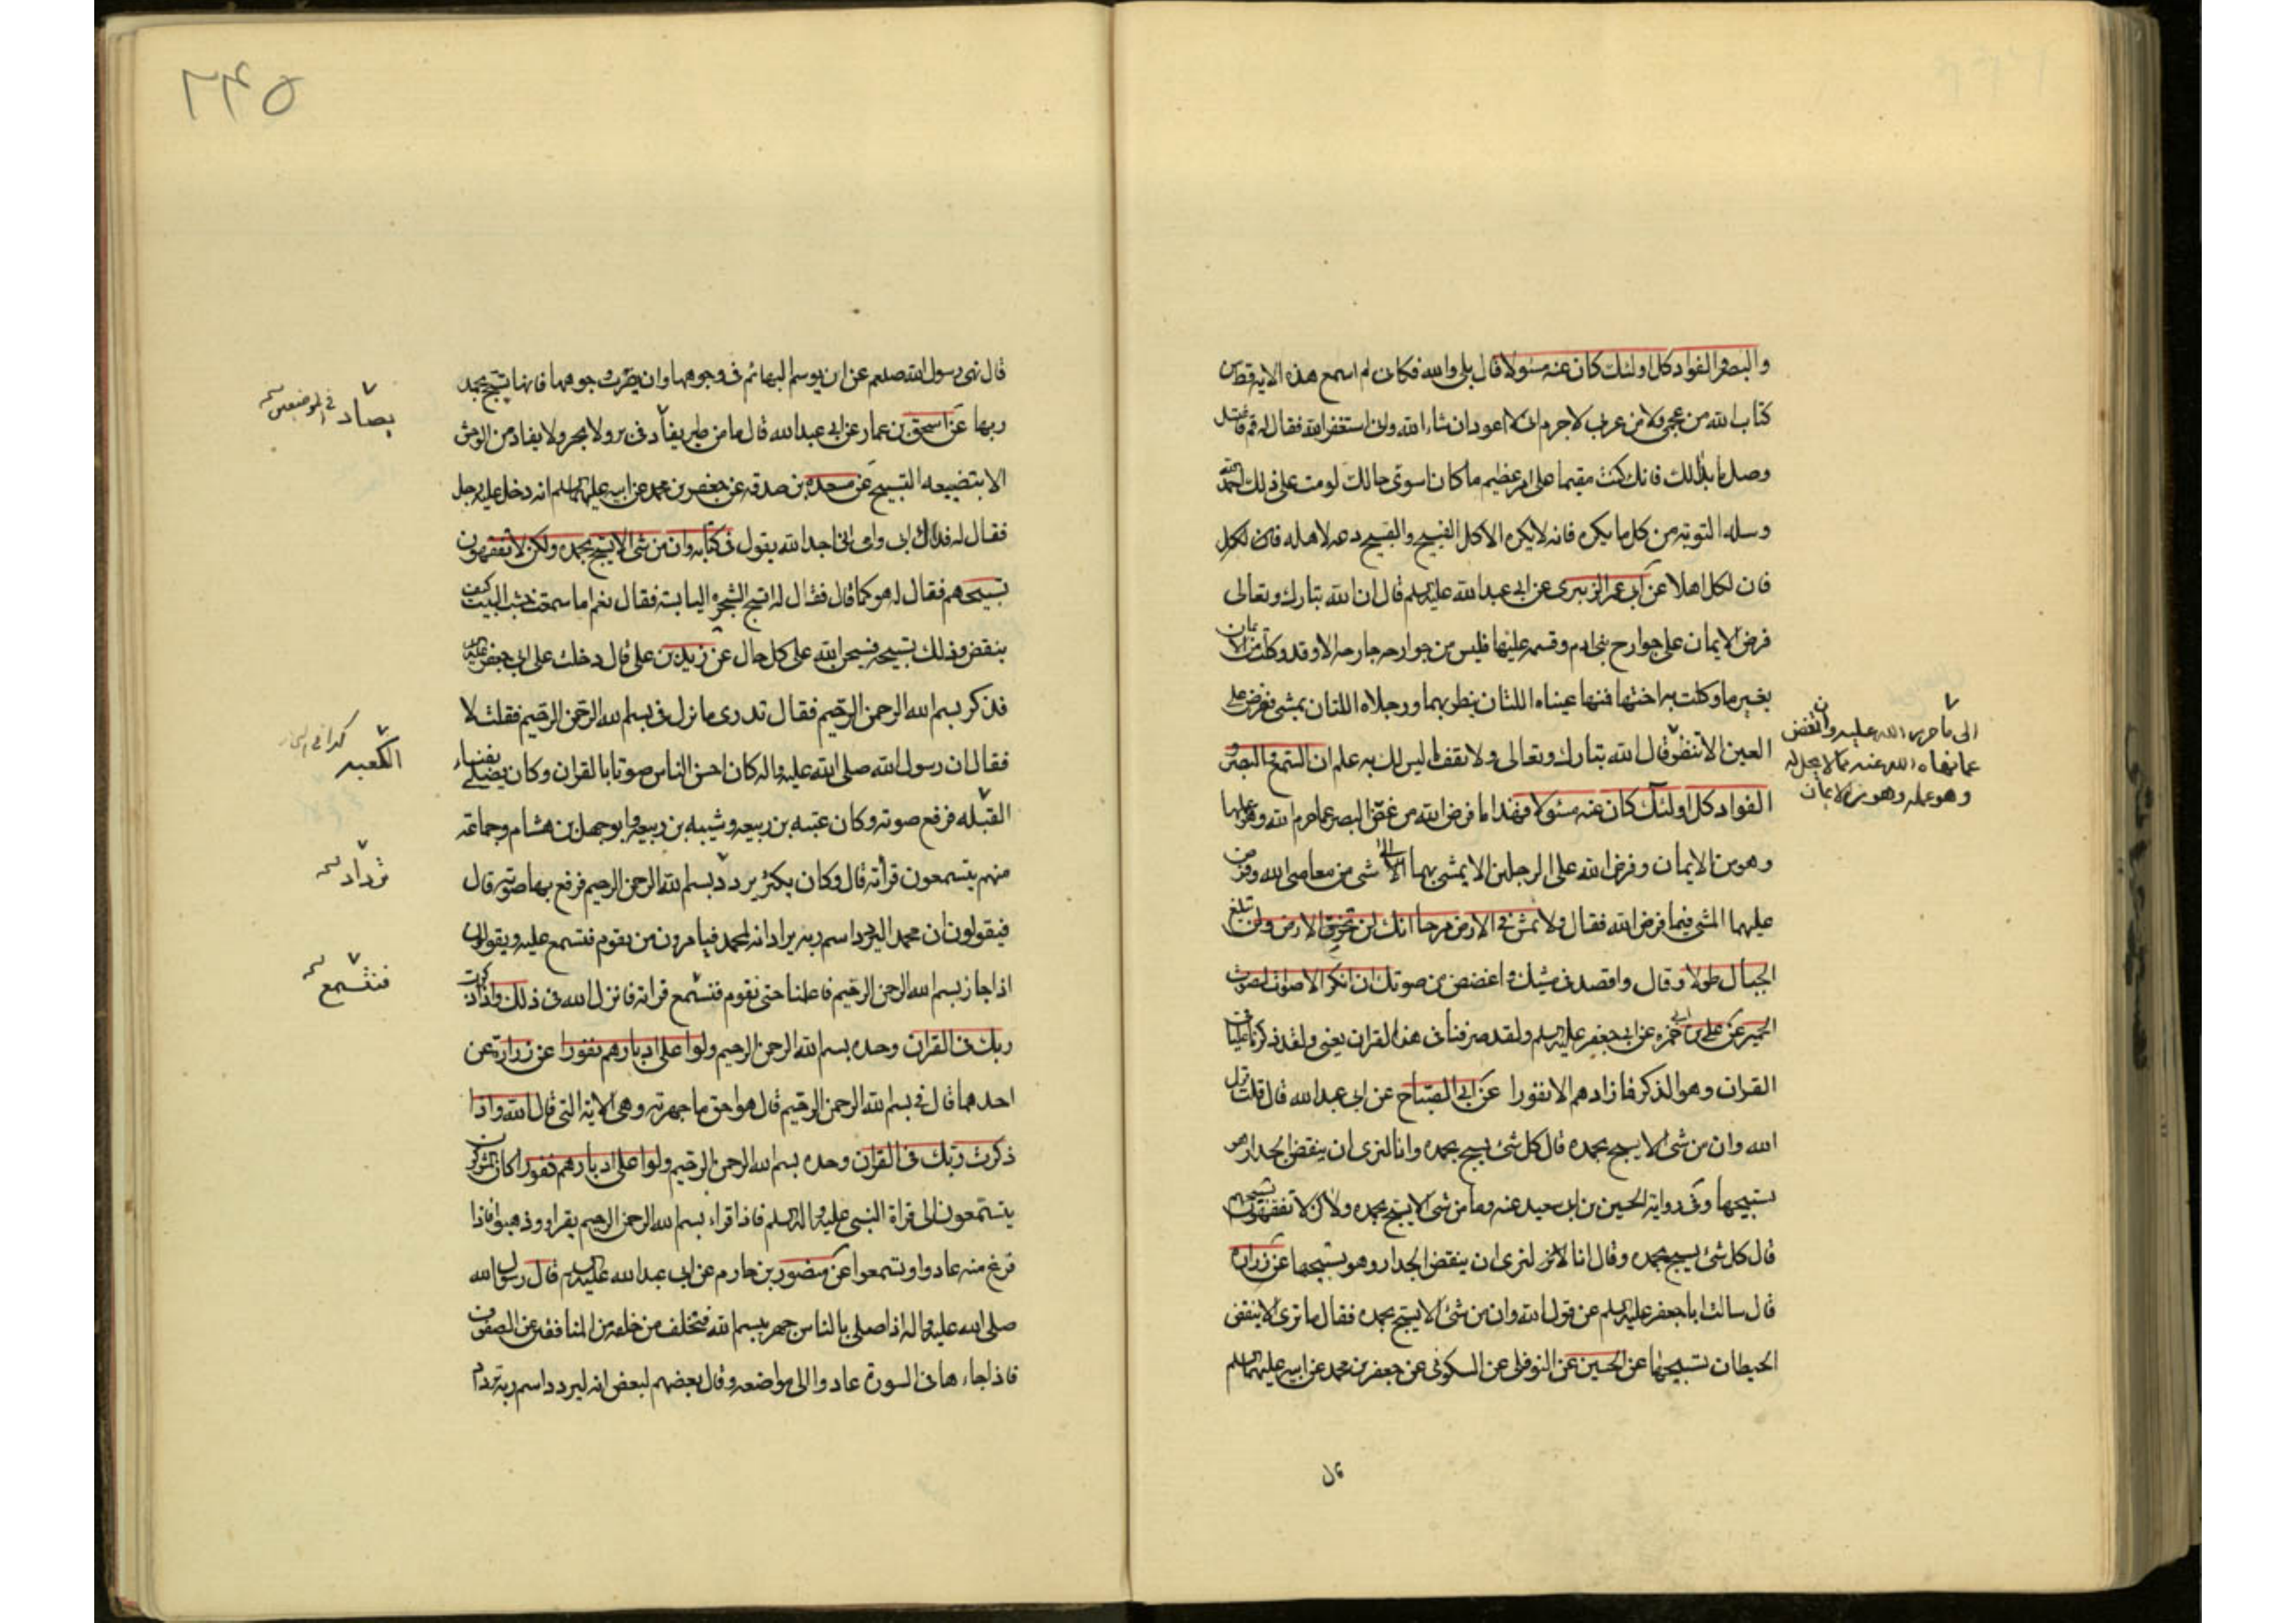 والبصر والفواد كل اولئك كان عنه مسئولا قال بلى والله فكان لم اسمع هذه الايه قط من
كتاب الله من عجمى ولا من عربى لاجرم انى لا اعود ان شاء الله وانى استغفر الله فقال له قم فاغتسل
وصل ما بدا لك فانك كنت مقيما على امر عظيم ما كان اسوى حالك لو مت على ذلك احمد الله
وسله التوبه من كل ما يكره فانه لا يكره الا كل القبيح والقبيح دعه لاهله فان لكل
فان لكل اهلا عن ابى عمر الزبيرى عن ابى عبدالله عليه السلم قال ان الله تبارك وتعالى
فرض الايمان على جوارح بنى ادم وقسمه عليها فليس من جوارحه جارحه الا وقد وكلت من الايمان
بغير ما وكلت به اختها فمنها عيناه اللتان ينظر بهما ورجلاه اللتان يمشى ففرض على
العين الا تنظر قال الله تبارك وتعالى ولا تقف ما ليس لك به علم ان السمع والبصر و
الفواد كل اولئك كان عنه مسئولا فهذا ما فرض الله من غض البصر عما حرم الله وهو عملها
وهو من الايمان وفرض الله على الرجلين الا يمشى بهما الى شى من معاصى الله وفرض
عليهما المشى فيما فرض الله فقال ولا تمش فى الارض مرحا انك لن تخرق الارض ولن تبلغ
الجبال طولا وقال واقصد فى مشيك واغضض من صوتك ان انكر الاصوات لصوت
الحمير عن على بن ابى حمزه عن ابى جعفر عليه السلم ولقد صرفنا فى هذا القران يعنى ولقد ذكرنا عليا فى
القران وهو الذكر فما زادهم الا نفورا عن ابى الصباح عن ابى عبدالله قال قلت قول
الله وان من شى الا يسبح بحمده قال كل شى يسبح بحمده وانا لنرى ان ينقض الجدار هو
تسبيحها وفى رواية الحسين بن ابى سعيد عنه وما من شى الا يسبح بحمده ولاكن لا تفقهون تسبيحهم
قال كل شى يسبح بحمده وقال انا لنرى ان ينقض الجدار وهو تسبيحها عن زراره
قال سالت اباجعفر عليه السلم عن قول الله وان من شى الا يسبح بحمده فقال ما ترى الا ينقض
الحيطان تسبيحها عن الحسين عن النوفلى عن السكونى عن جعفر بن محمد عن ابيه عليهما السلم
الى ما حرم الله عليه وان يغض
عما نهاه الله عنه مما لا يحل له
وهو عمله وهو من الايمان
قال
٢٤٥
قال نهى رسول الله صلعم عن ان يوسم البهائم فى وجوهها وان يضرب وجوهها فانها يسبح بحمد
ربها عن اسحق بن عمار عن ابى عبدالله قال ما من طير يفاد فى بر ولا بحر ولا يفاد من الوحش
الا بتضييعه التسبيح عن مسعده بن صدقه عن جعفر بن محمد عن ابيه عليهما السلم انه دخل عليه رجل
فقال له فداك ابى وامى انى اجد الله يقول فى كتابه وان من شى الا يسبح بحمده ولكن لا تفقهون
تسبيحهم فقال له هو كما قال فقال له اتسبح الشجره اليابسه فقال نعم اما سمعت خشب البيت كيف
ينقض وذلك تسبيحه فسبحن الله على كل حال عن زيد بن على قال دخلت على ابى جعفر عليه السلم
فذكر بسم الله الرحمن الرحيم فقال تدرى ما نزل فى بسم الله الرحمن الرحيم فقلت لا
فقال ان رسول الله صلى الله عليه واله كان احسن الناس صوتا بالقران وكان يصلى بفناء
القبله فرفع صوته وكان عتبه بن ربيعه وشيبه بن ربيعه وابوجهل بن هشام وجماعه
منهم يستمعون قرأته قال وكان يكثر يردد بسم الله الرحمن الرحيم فرفع بها صوته قال
فيقولون ان محمد اليردد اسم ربه يرادا انه لمحمد فيامرون من يقوم فتسمع عليه ويقولون
اذا جاز بسم الله الرحمن الرحيم فاعلمنا حتى نقوم فنستمع قراته فانزل الله فى ذلك واذا ذكرت
ربك فى القران وحده بسم الله الرحمن الرحيم ولوا على ادبارهم نفورا عن زرارة عن
احدهما قال فى بسم الله الرحمن الرحيم قال هو احق ما جهر به وهى الايه التى قال الله واذا
ذكرت ربك فى القران وحده بسم الله الرحمن الرحيم ولوا على ادبارهم نفورا كان المشركون
يستمعون الى قراة النبى عليه واله السلم فاذا قراء بسم الله الرحمن الرحيم نفروا وذهبوا فاذا
فرغ منه عادوا وتسمعوا عن منصور بن حازم عن ابى عبدالله عليه السلم قال رسول الله
صلى الله عليه واله اذا صلى بالناس جهر ببسم الله فتخلف من خلفه من المنافقين عن الصفوف
فاذا جاء هاى السورة عادوا الى مواضعه وقال بعضهم لبعض انه ليردد اسم ربه تردادا
يصاد فى الموضعين
الكعبه كذا فى البحار
ترداد
فنستمع